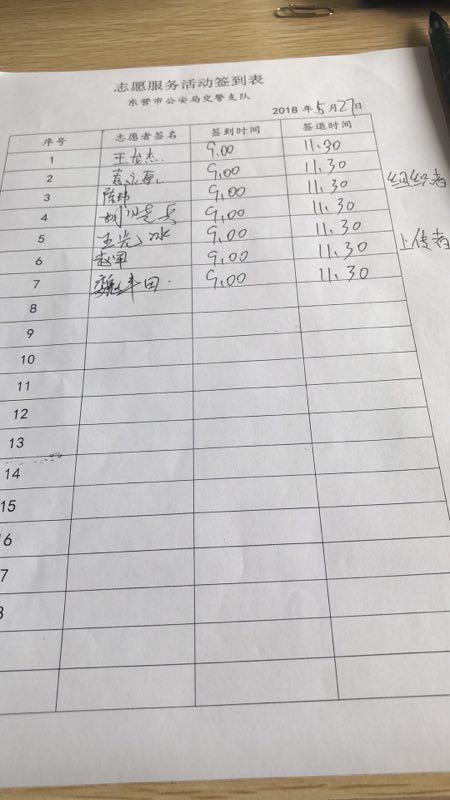 志愿服务活动签到表
东营市公安局交警支队
2018 年 5 月 27 日
序号 志愿者签名 签到时间 签退时间
1 9.00 11.30
2 9.00 11.30
3 陈玮 9.00 11.30 组织者
4 9.00 11.30
5 王光冰 9.00 11.30
6 赵军 9.00 11.30 上传者
7 魏丰田 9.00 11.30
8
9
10
11
12
13
14
15
6
7